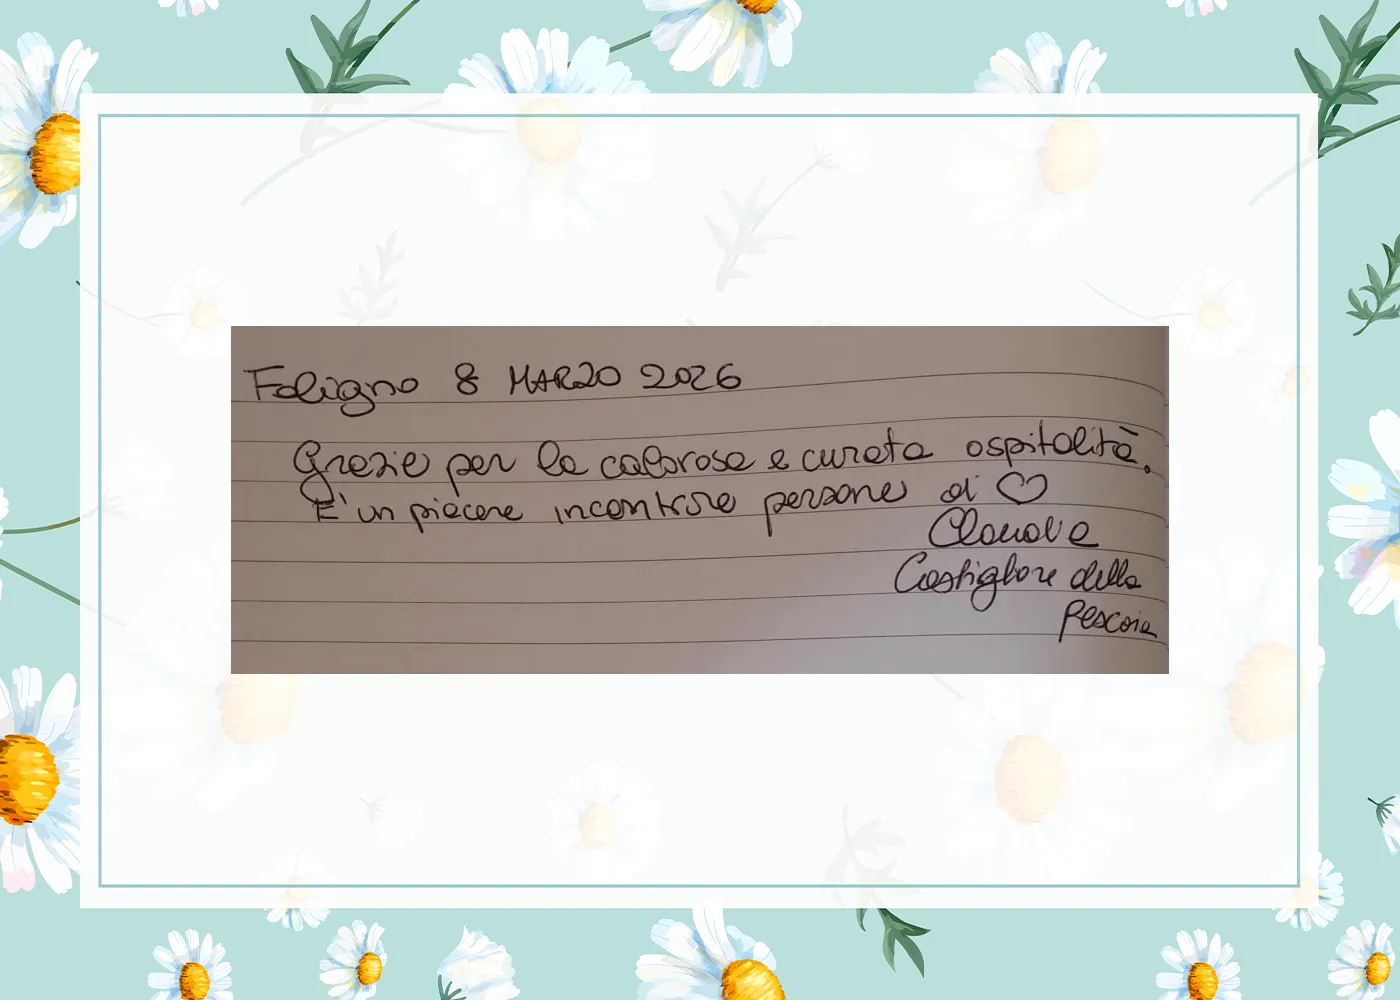 Foligno 8 MARZO 2026
Grazie per la calorosa e curata ospitalità.
E' un piacere incontrare persone di ♡
Claudia
Castiglione della
Pescaia